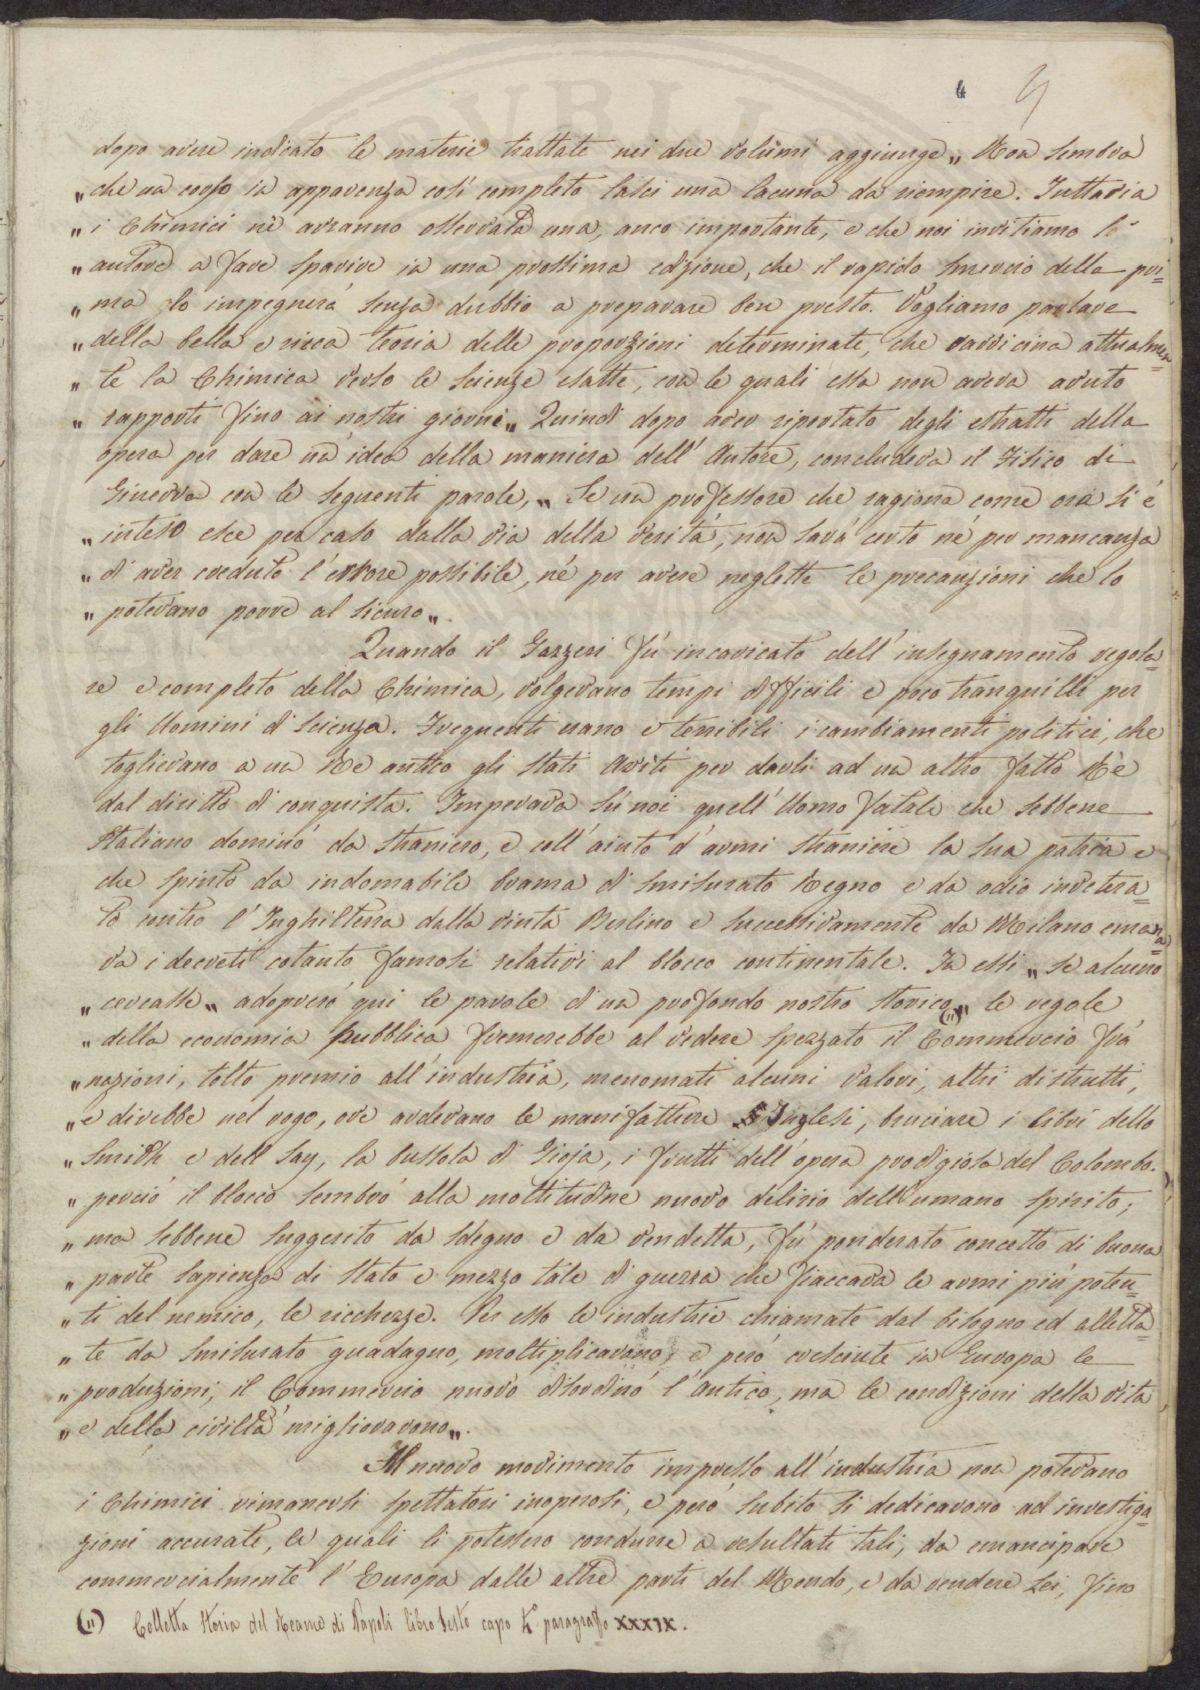 4
dopo avere indicato le materie trattate nei due volumi aggiunge „ Non sembra
„ che un corso in apparenza così completo lasci una lacuna da riempire. Tuttavia
„ i Chimici nè avranno osservata una, anco importante, e che noi invitiamo l'
„ autore a fare sparire in una prossima edizione, che il rapido smercio della pri=
„ ma lo impegnerà senza dubbio a preparare ben presto. Vogliamo parlare
„ della bella e ricca teoria delle proporzioni determinate, che ravvicina attualmen=
„ te la Chimica verso le scienze esatte, con le quali essa non aveva avuto
„ rapporti fino ai nostri giorni „ Quindi dopo aver riportato degli estratti della
opera per dare un'idea della maniera dell'Autore, concludeva il Fisico di
Ginevra con le seguenti parole, „ Se un professore che ragiona come ora si è
„ inteso esce per caso dalla via della verità, non sarà certo nè per mancanza
„ di aver creduto l'errore possibile, nè per avere neglette le precauzioni che lo
„ potevano porre al sicuro „.
Quando il Gazzeri fù incaricato dell'insegnamento regola=
re e completo della Chimica, volgevano tempi difficili e poco tranquilli per
gli Uomini di scienza. Frequenti erano e terribili i cambiamenti politici, che
toglievano a un Re antico gli stati Aviti per darli ad un altro fatto Rè
dal diritto di conquista. Imperava sù noi quell'Uomo fatale che sebbene
Italiano dominò da straniero, e coll'aiuto d'armi straniere la sua patria e
che spinto da indomabile brama di smisurato Regno e da odio invetera=
to contro l'Inghilterra dalla vinta Berlino e successivamente da Milano emana=
va i decreti cotanto famosi relativi al blocco continentale. In essi „ se alcuno
„ cercasse „ adoprerò qui le parole di un profondo nostro storico (1) „ le regole
„ della economia pubblica fremerebbe al vedere spezzato il Commercio frà
„ nazioni, tolto premio all'industria, menomati alcuni valori, altri distrutti,
„ e direbbe nel rogo, ove ardevano le manifatture Inglesi, bruciare i libri dello
„ Smith e dell Say, la bussola di Gioja, i frutti dell'opera prodigiosa del Colombo.
„ perciò il blocco sembrò alla moltitudine nuovo delirio dell'umano spirito;
„ ma sebbene suggerito da sdegno e da vendetta, fù ponderato concetto di buona
„ parte sapienza di stato e mezzo tale di guerra che fiaccava le armi più poten=
„ ti del nemico, le ricchezze. Per esso le industrie chiamate dal bisogno ed alletta=
„ te da smisurato guadagno, moltiplicavano; e però cresciute in Europa le
„ produzioni, il Commercio nuovo disordinò l'antico, ma le condizioni della vita
„ e della civiltà migliorarono „.
Al nuovo movimento impresso all'industria non potevano
i Chimici rimanersi spettatori inoperosi, e però subito si dedicarono ad investiga=
zioni accurate, le quali li potessero condurre a resultati tali, da emancipare
commercialmente l'Europa dalle altre parti del Mondo, e da rendere Lei, fino
(1) Colletta Storia del Reame di Napoli libro sesto capo 4° paragrafo XXXIX.